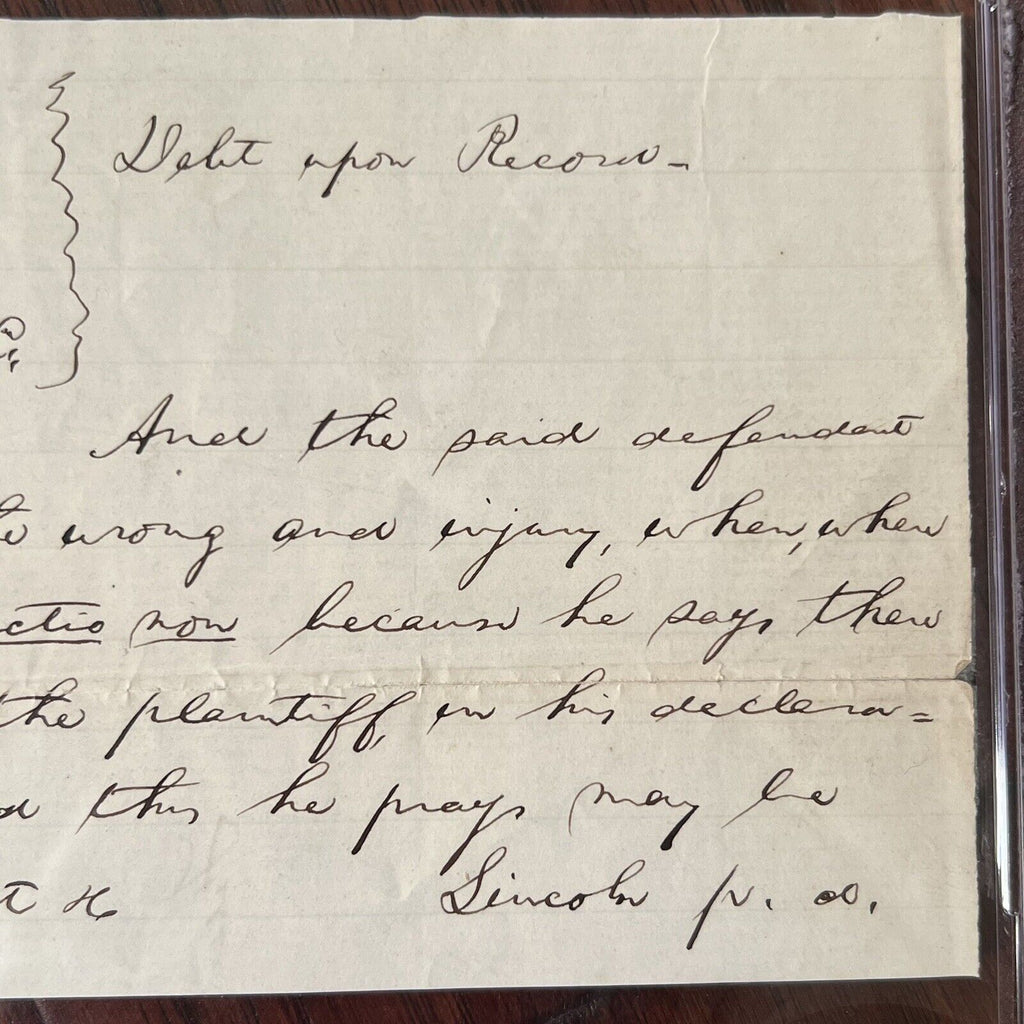 Debt upon Record-
And the said defendant
wrong and injury, when, when
ctio non because he says there
the plaintiff, in his declara=
this he prays may be
Lincoln p. d.